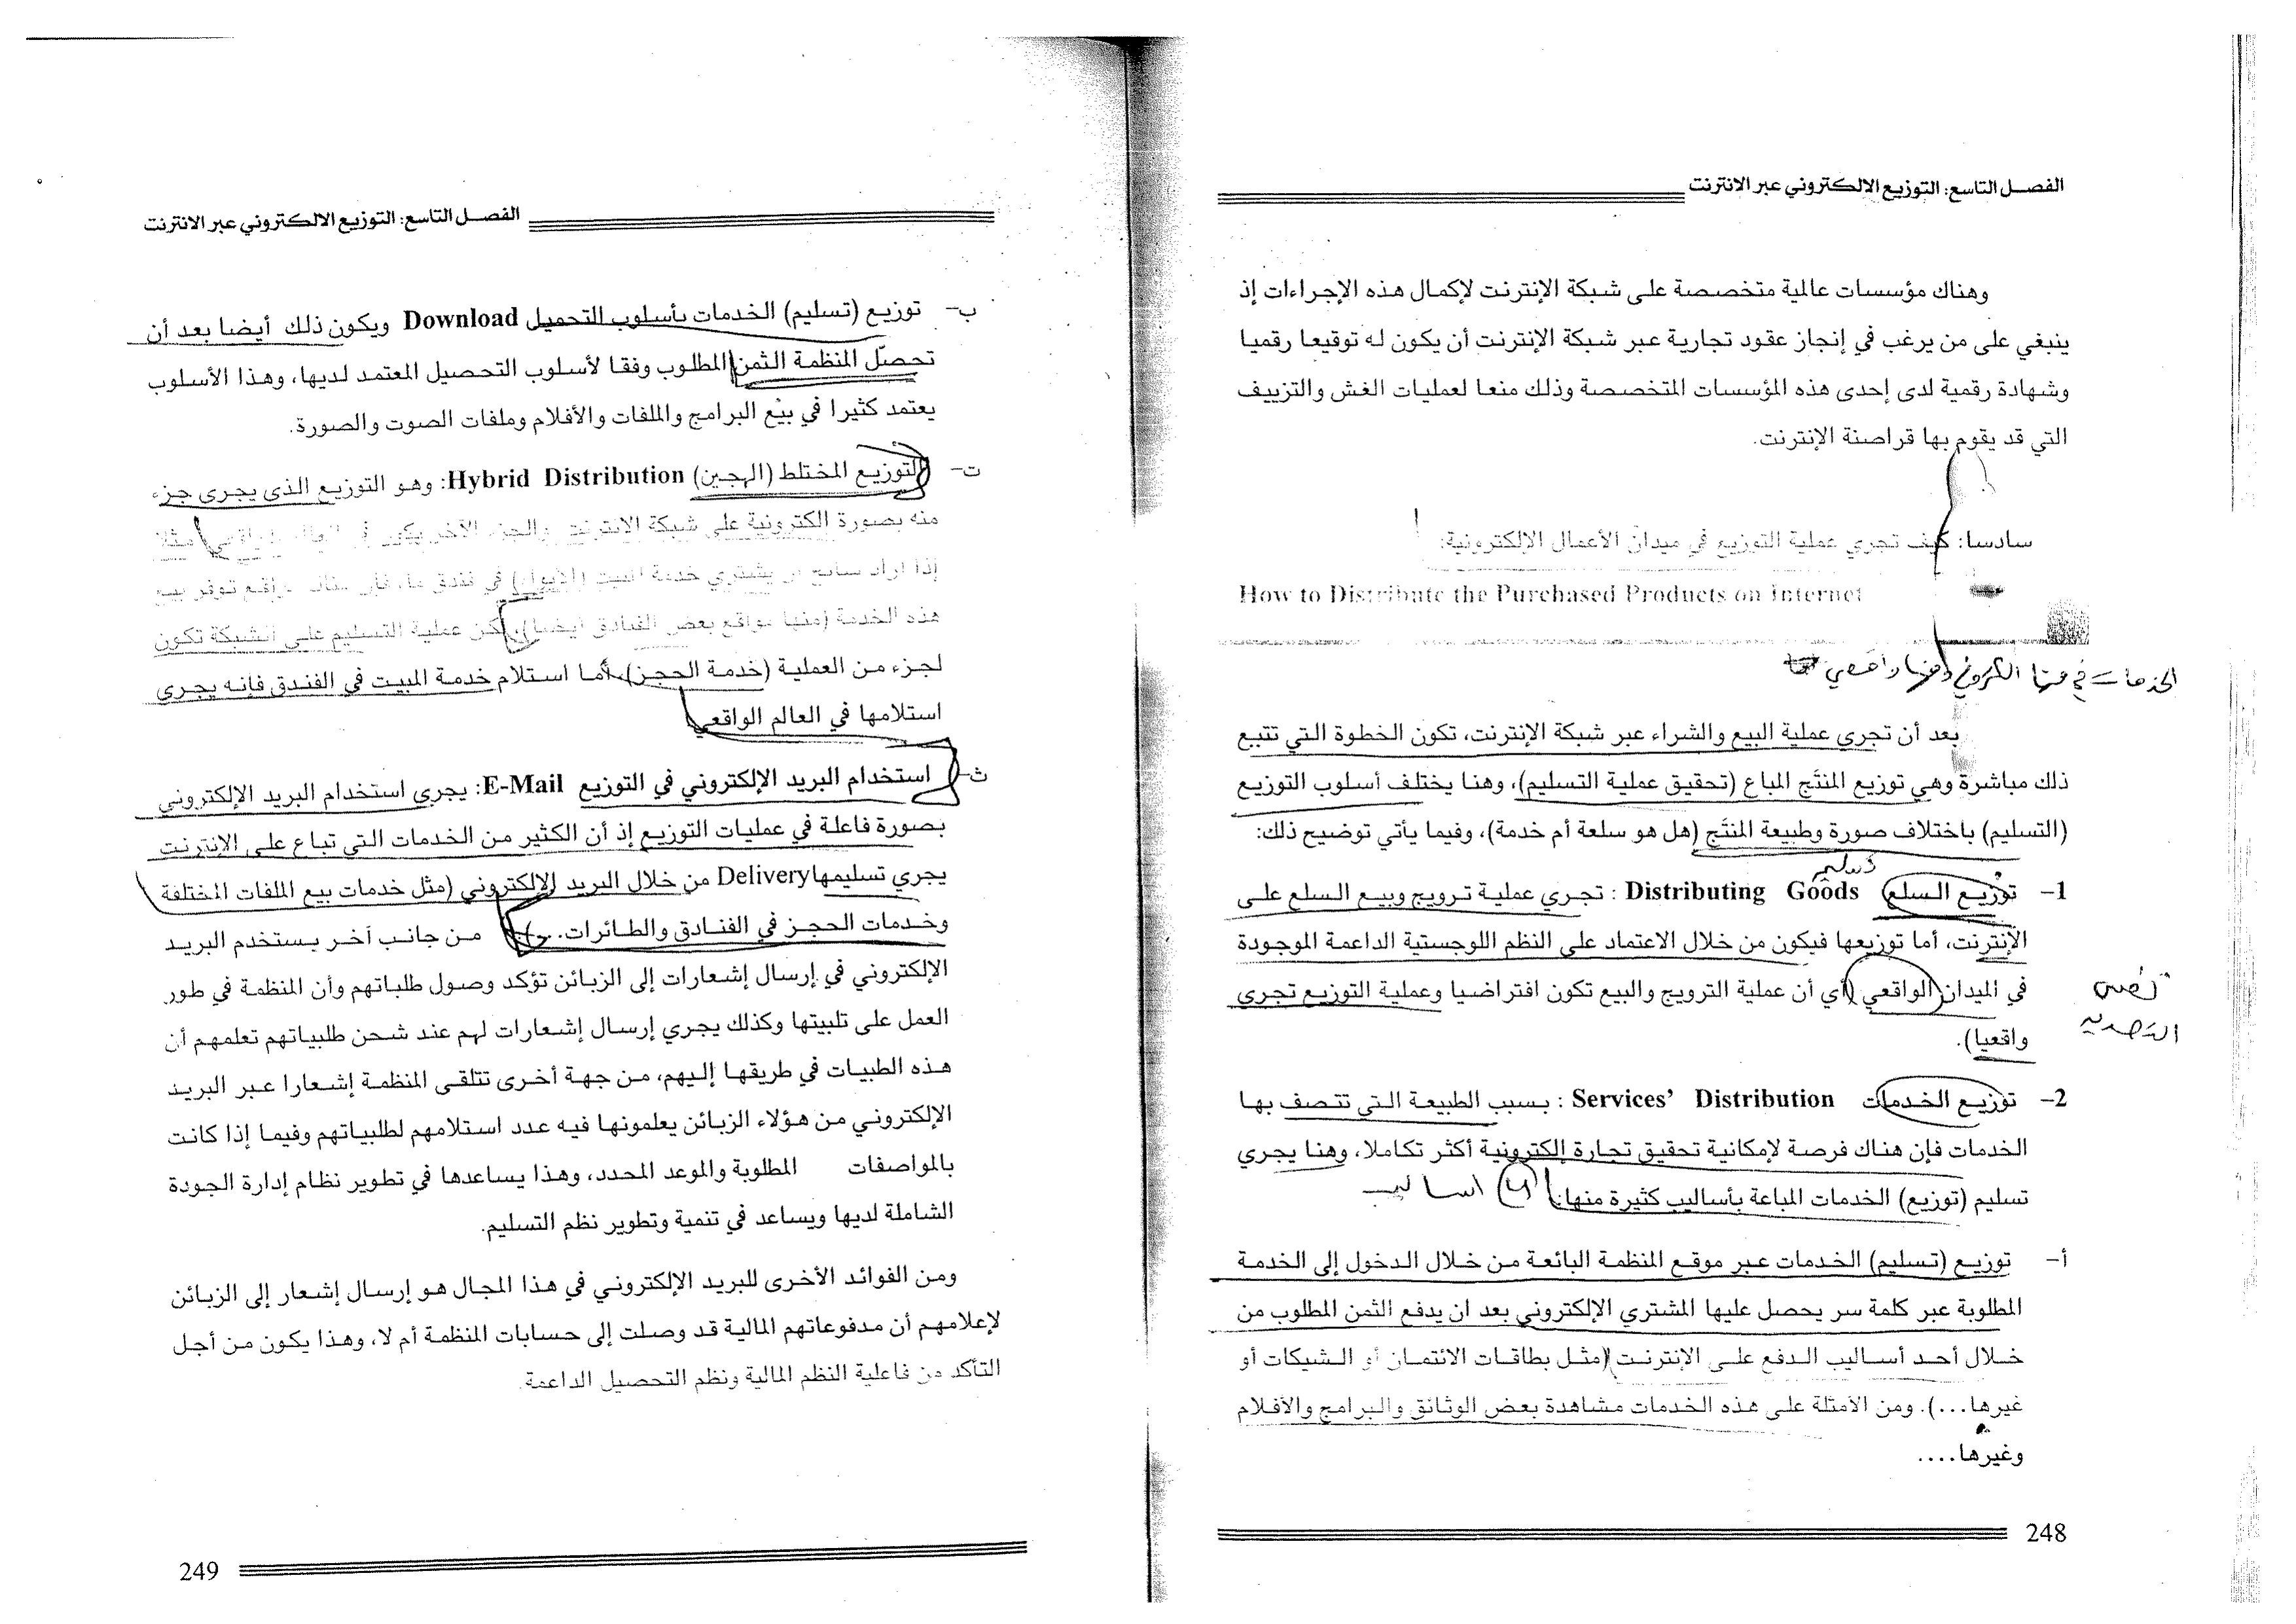 الفصل التاسع: التوزيع الالكتروني عبر الانترنت
وهناك مؤسسات عالمية متخصصة على شبكة الإنترنت لإكمال هذه الإجراءات إذ
ينبغي على من يرغب في إنجاز عقود تجارية عبر شبكة الإنترنت أن يكون له توقيعا رقميا
وشهادة رقمية لدى إحدى هذه المؤسسات المتخصصة وذلك منعا لعمليات الغش والتزييف
التي قد يقوم بها قراصنة الإنترنت.
سادسا: كيف تجري عملية التوزيع في ميدان الأعمال الإلكترونية:
How to Distribute the Purchased Products on Internet
الخدمات في منها الكتروني ومنها واقعي
بعد أن تجري عملية البيع والشراء عبر شبكة الإنترنت، تكون الخطوة التي تتبع
ذلك مباشرة وهي توزيع المنتَج المباع (تحقيق عملية التسليم)، وهنا يختلف أسلوب التوزيع
(التسليم) باختلاف صورة وطبيعة المنتَج (هل هو سلعة أم خدمة)، وفيما يأتي توضيح ذلك:
تسليم
1- توزيع السلع Distributing Goods : تجري عملية ترويج وبيع السلع على
الإنترنت، أما توزيعها فيكون من خلال الاعتماد على النظم اللوجستية الداعمة الموجودة
في الميدان الواقعي (أي أن عملية الترويج والبيع تكون افتراضيا وعملية التوزيع تجري
واقعيا).
2- توزيع الخدمات Services' Distribution : بسبب الطبيعة التي تتصف بها
الخدمات فإن هناك فرصة لإمكانية تحقيق تجارة إلكترونية أكثر تكاملا، وهنا يجري
تسليم (توزيع) الخدمات المباعة بأساليب كثيرة منها: (4) اساليب
أ- توزيع (تسليم) الخدمات عبر موقع المنظمة البائعة من خلال الدخول إلى الخدمة
المطلوبة عبر كلمة سر يحصل عليها المشتري الإلكتروني بعد ان يدفع الثمن المطلوب من
خلال أحد أساليب الدفع على الإنترنت (مثل بطاقات الائتمان أو الشيكات أو
غيرها...). ومن الأمثلة على هذه الخدمات مشاهدة بعض الوثائق والبرامج والأفلام
وغيرها....
248
الفصل التاسع: التوزيع الالكتروني عبر الانترنت
ب- توزيع (تسليم) الخدمات بأسلوب التحميل Download ويكون ذلك أيضا بعد أن
تحصّل المنظمة الثمن المطلوب وفقا لأسلوب التحصيل المعتمد لديها، وهذا الأسلوب
يعتمد كثيرا في بيْع البرامج والملفات والأفلام وملفات الصوت والصورة.
ت- التوزيع المختلط (الهجين) Hybrid Distribution: وهو التوزيع الذي يجري جزء
منه بصورة الكترونية على شبكة الانترنت والجزء الآخر يكون في العالم الواقعي، مثلا
إذا اراد سائح ان يشتري خدمة المبيت (الإيواء) في فندق ما، فإن هناك مواقع توفر بيع
هذه الخدمة (منها مواقع بعض الفنادق أيضا)، لكن عملية التسليم على الشبكة تكون
لجزء من العملية (خدمة الحجز)، أما استلام خدمة المبيت في الفندق فإنه يجري
استلامها في العالم الواقعي.
ث- استخدام البريد الإلكتروني في التوزيع E-Mail: يجري استخدام البريد الإلكتروني
بصورة فاعلة في عمليات التوزيع إذ أن الكثير من الخدمات التي تباع على الإنترنت
يجري تسليمها Delivery من خلال البريد الإلكتروني (مثل خدمات بيع الملفات المختلفة
وخدمات الحجز في الفنادق والطائرات...). من جانب آخر يستخدم البريد
الإلكتروني في إرسال إشعارات إلى الزبائن تؤكد وصول طلباتهم وأن المنظمة في طور
العمل على تلبيتها وكذلك يجري إرسال إشعارات لهم عند شحن طلبياتهم تعلمهم أن
هذه الطبيات في طريقها إليهم، من جهة أخرى تتلقى المنظمة إشعارا عبر البريد
الإلكتروني من هؤلاء الزبائن يعلمونها فيه عدد استلامهم لطلبياتهم وفيما إذا كانت
بالمواصفات المطلوبة والموعد المحدد، وهذا يساعدها في تطوير نظام إدارة الجودة
الشاملة لديها ويساعد في تنمية وتطوير نظم التسليم.
ومن الفوائد الأخرى للبريد الإلكتروني في هذا المجال هو إرسال إشعار إلى الزبائن
لإعلامهم أن مدفوعاتهم المالية قد وصلت إلى حسابات المنظمة أم لا، وهذا يكون من أجل
التأكد من فاعلية النظم المالية ونظم التحصيل الداعمة.
249